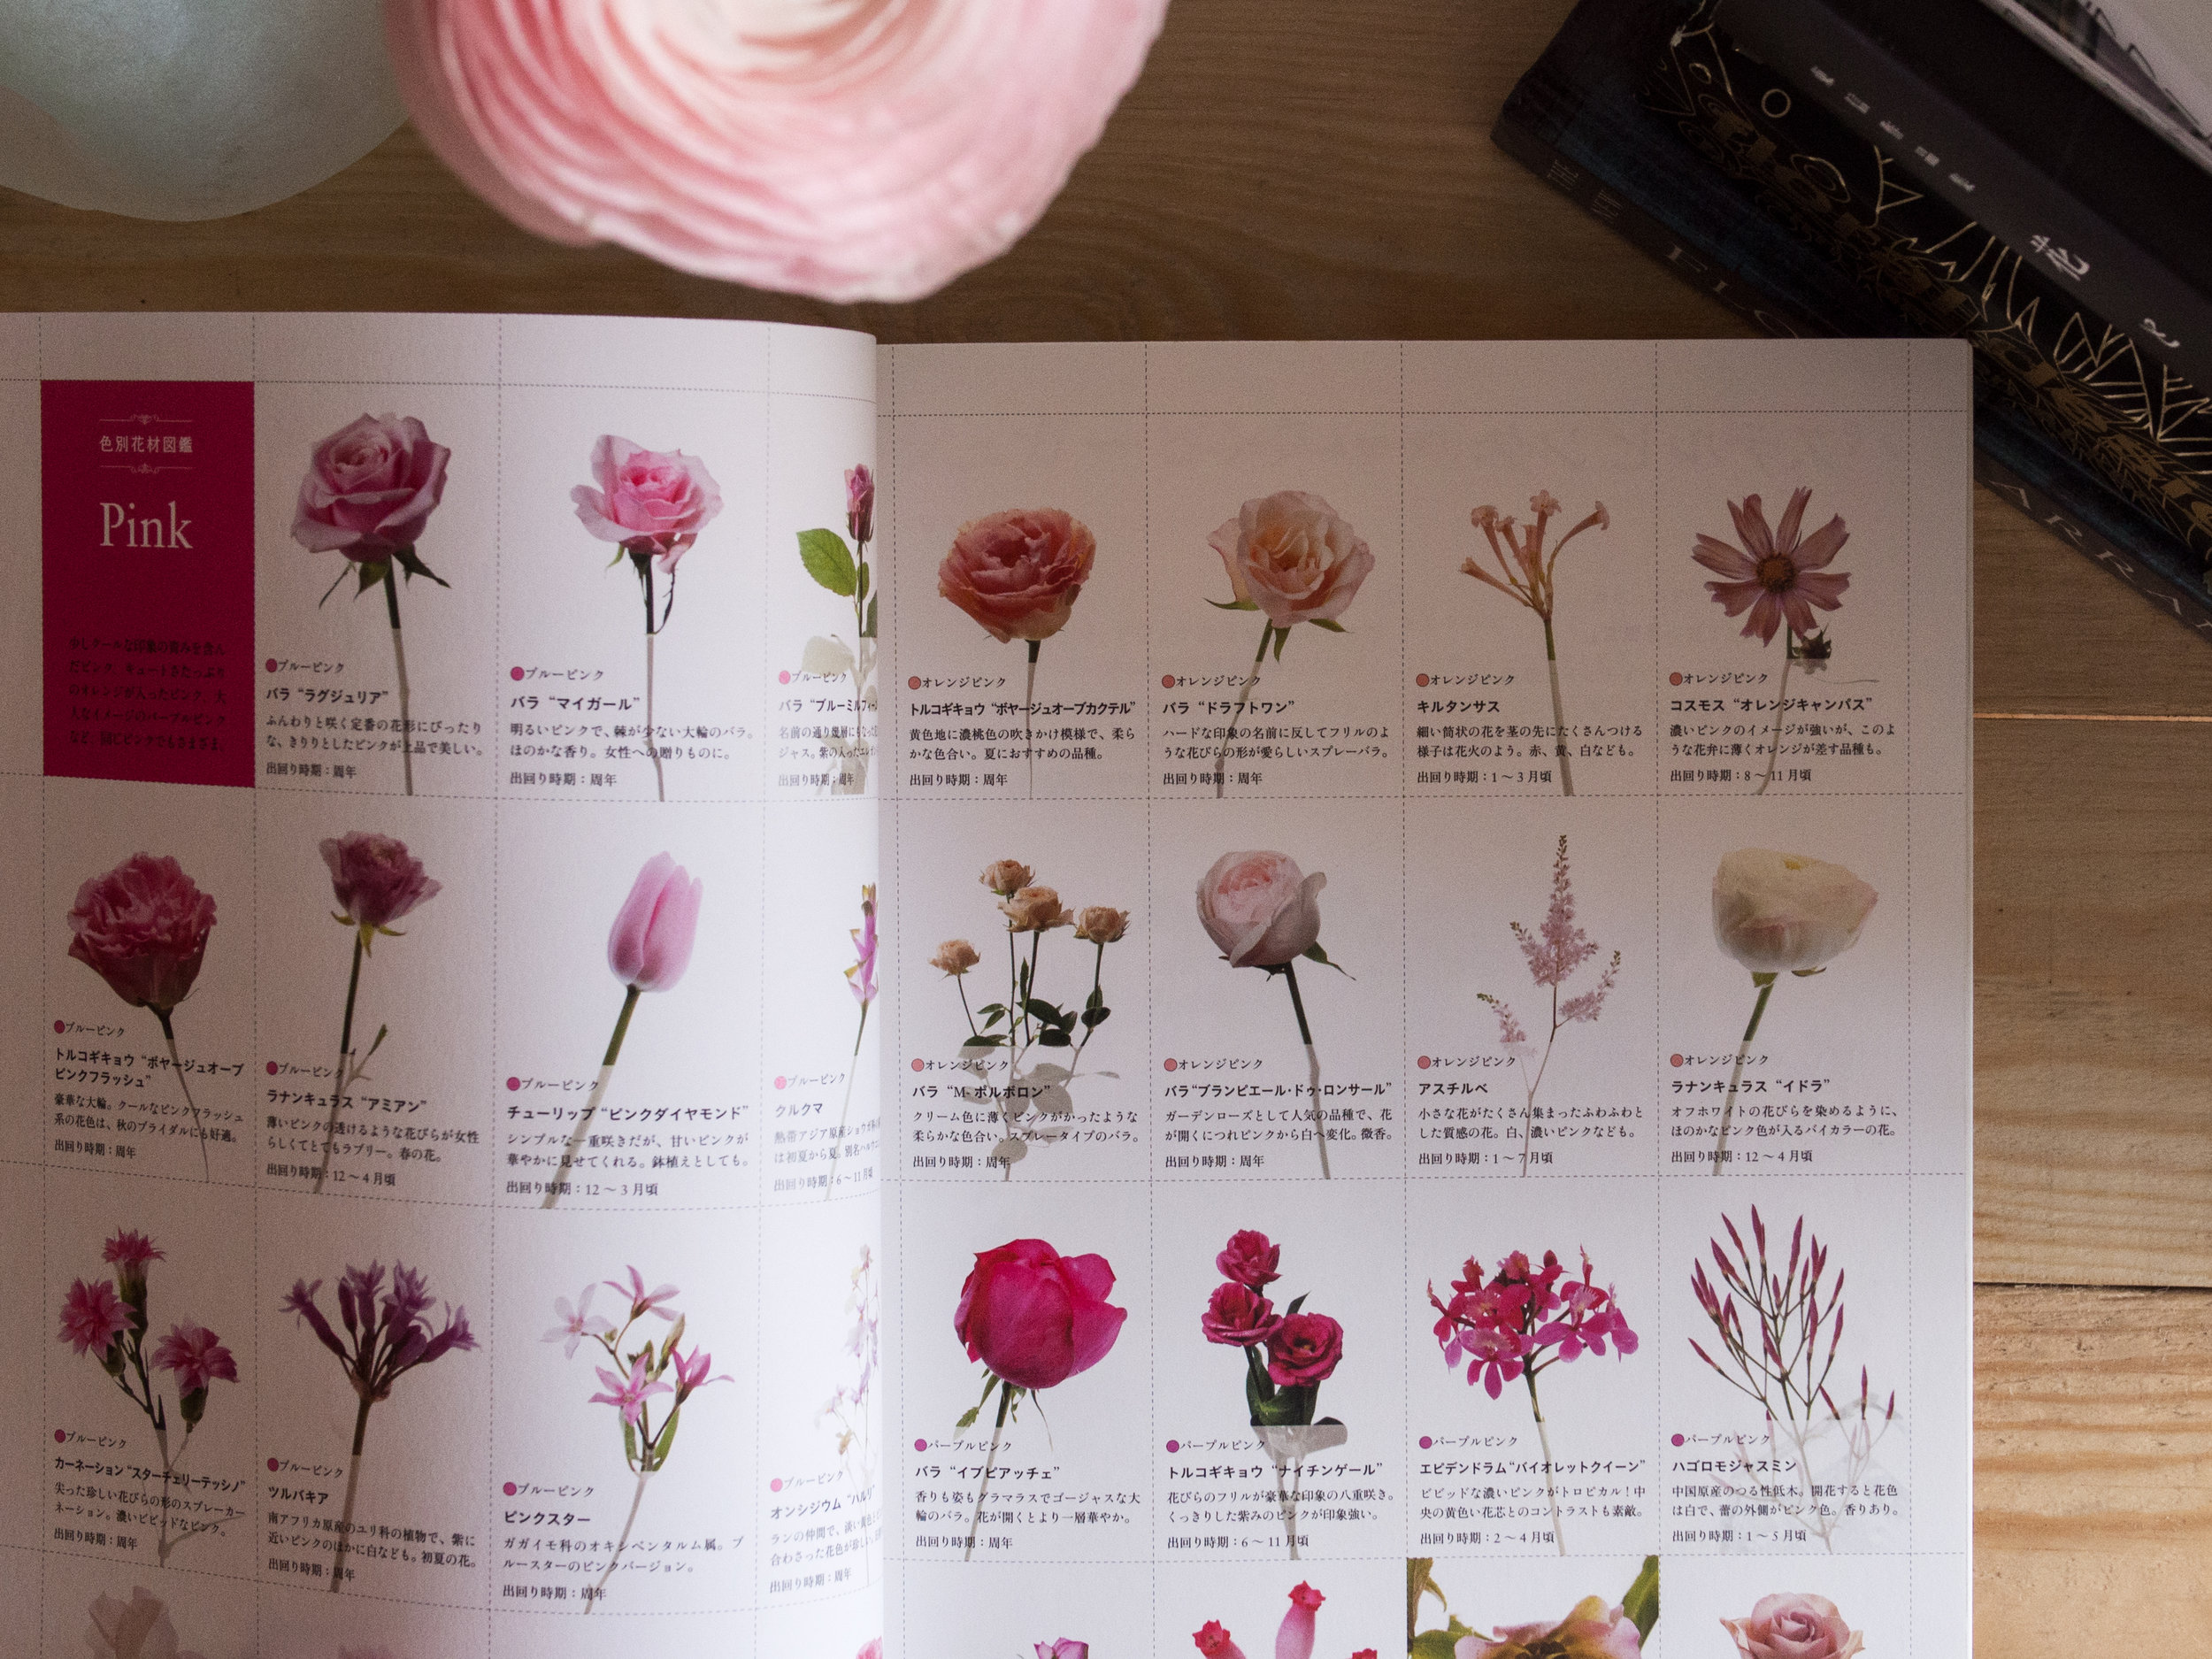 色別花材図鑑
Pink
少しクールな印象の青みを含ん
だピンク、キュートさたっぷり
のオレンジが入ったピンク、大
人なイメージのパープルピンク
など、同じピンクでもさまざま。
ブルーピンク
バラ “ラグジュリア”
ふんわりと咲く定番の花形にぴったり
な、きりりとしたピンクが上品で美しい。
出回り時期：周年
ブルーピンク
バラ “マイガール”
明るいピンクで、棘が少ない大輪のバラ。
ほのかな香り。女性への贈りものに。
出回り時期：周年
ブルーピンク
バラ “ブルーミル
名前の通り幾層に
ジャス。紫の入った
出回り時期：周年
ブルーピンク
トルコギキョウ “ボヤージュオーブ
ピンクフラッシュ”
豪華な大輪。クールなピンクフラッシュ
系の花色は、秋のブライダルにも好適。
出回り時期：周年
ブルーピンク
ラナンキュラス “アミアン”
薄いピンクの透けるような花びらが女性
らしくてとてもラブリー。春の花。
出回り時期：12～4月頃
ブルーピンク
チューリップ “ピンクダイヤモンド”
シンプルな一重咲きだが、甘いピンクが
華やかに見せてくれる。鉢植えとしても。
出回り時期：12～3月頃
ブルーピンク
クルクマ
熱帯アジア原産
は初夏から夏。別名
出回り時期：6～11月頃
ブルーピンク
カーネーション “スターチェリーテッシノ”
尖った珍しい花びらの形のスプレーカー
ネーション。濃いビビッドなピンク。
出回り時期：周年
ブルーピンク
ツルバキア
南アフリカ原産のユリ科の植物で、紫に
近いピンクのほかに白なども。初夏の花。
出回り時期：周年
ブルーピンク
ピンクスター
ガガイモ科のオキシペンタルム属。ブ
ルースターのピンクバージョン。
出回り時期：周年
ブルーピンク
オンシジウム “ハルリ
ランの仲間で、淡い黄色
合わさった花色が
出回り時期：周年
オレンジピンク
トルコギキョウ “ボヤージュオーブカクテル”
黄色地に濃桃色の吹きかけ模様で、柔ら
かな色合い。夏におすすめの品種。
出回り時期：周年
オレンジピンク
バラ “ドラフトワン”
ハードな印象の名前に反してフリルのよ
うな花びらの形が愛らしいスプレーバラ。
出回り時期：周年
オレンジピンク
キルタンサス
細い筒状の花を茎の先にたくさんつける
様子は花火のよう。赤、黄、白なども。
出回り時期：1～3月頃
オレンジピンク
コスモス “オレンジキャンパス”
濃いピンクのイメージが強いが、このよ
うな花弁に薄くオレンジが差す品種も。
出回り時期：8～11月頃
オレンジピンク
バラ “M-ボルボロン”
クリーム色に薄くピンクがかったような
柔らかな色合い。スプレータイプのバラ。
出回り時期：周年
オレンジピンク
バラ “ブランピエール・ドゥ・ロンサール”
ガーデンローズとして人気の品種で、花
が開くにつれピンクから白へ変化。微香。
出回り時期：周年
オレンジピンク
アスチルベ
小さな花がたくさん集まったふわふわと
した質感の花。白、濃いピンクなども。
出回り時期：1～7月頃
オレンジピンク
ラナンキュラス “イドラ”
オフホワイトの花びらを染めるように、
ほのかなピンク色が入るバイカラーの花。
出回り時期：12～4月頃
パープルピンク
バラ “イブピアッチェ”
香りも姿もグラマラスでゴージャスな大
輪のバラ。花が開くとより一層華やか。
出回り時期：周年
パープルピンク
トルコギキョウ “ナイチンゲール”
花びらのフリルが豪華な印象の八重咲き。
くっきりした紫みのピンクが印象強い。
出回り時期：6～11月頃
パープルピンク
エピデンドラム “バイオレットクイーン”
ビビッドな濃いピンクがトロピカル！中
央の黄色い花芯とのコントラストも素敵。
出回り時期：2～4月頃
パープルピンク
ハゴロモジャスミン
中国原産のつる性低木。開花すると花色
は白で、蕾の外側がピンク色。香りあり。
出回り時期：1～5月頃
花